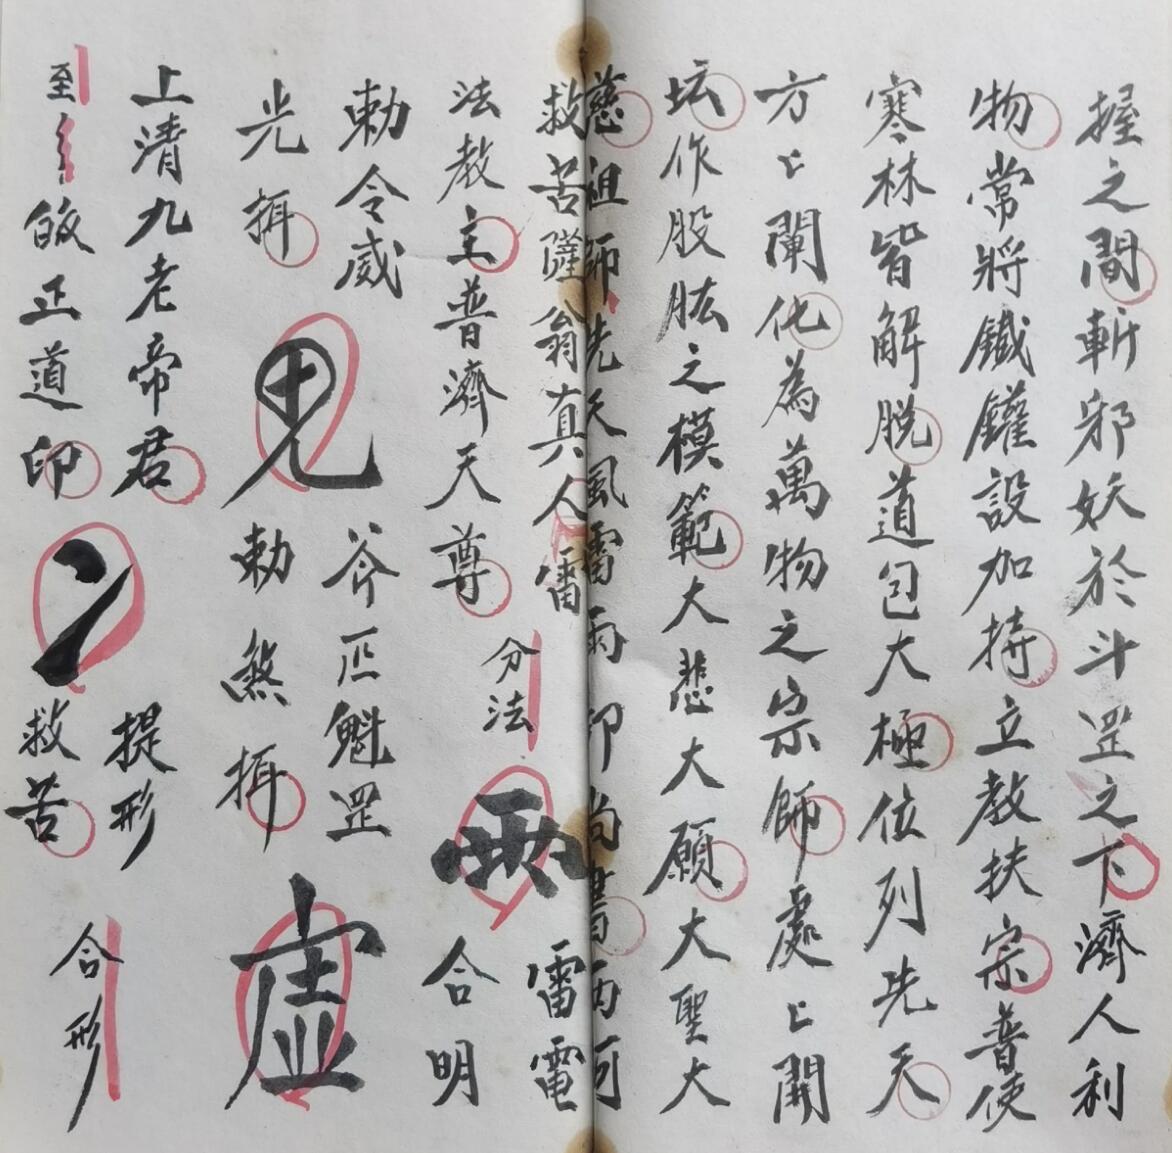 握之間斬邪妖於斗罡之下濟人利
物常將鐵鑵設加持立教扶宗普使
寒林皆解脱道包大極位列先天
方〻闡化為萬物之宗師處〻開
坛作股肱之模範大悲大願大聖大
慈祖師先天風雷雨部尚書西河
救苦薩翁真人雷
雷電
法教主普濟天尊
分法
合明
勅令威
斧
魁罡
光揖
勅煞揖
虛
上清九老帝君
提形
至
皈正道印
救苦
合形